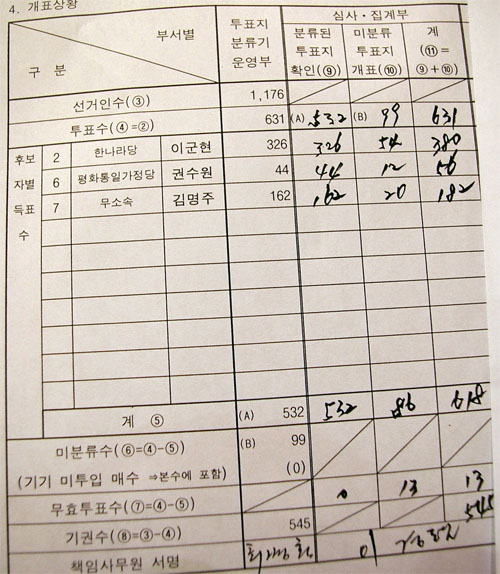 4. 개표상황
부서별
구 분
투표지
분류기
운영부
심사·집계부
분류된
투표지
확인(⑨)
미분류
투표지
개표(⑩)
계
(⑪=
⑨+⑩)
선거인수(③) 1,176
투표수(④=②) 631 (A) 532 (B) 99 631
후보
자별
득표
수
2 한나라당 이군현 326 326 54 380
6 평화통일가정당 권수원 44 44 12 56
7 무소속 김명주 162 162 20 182
계 ⑤ (A) 532 532 86 618
미분류수(⑥=④-⑤) (B) 99
(기기 미투입 매수 ⇒본수에 포함) (0)
무효투표수(⑦=④-⑤) 0 13 13
기권수(⑧=③-④) 545 545
책임사무원 서명